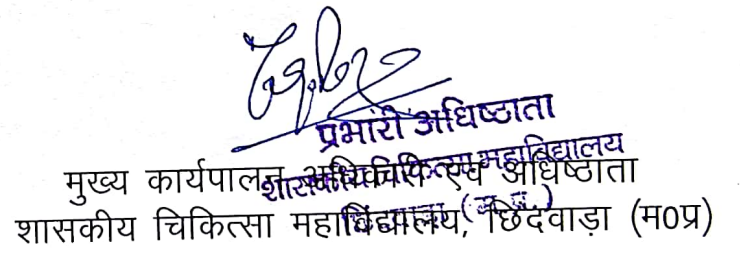 प्रभारी अधिष्ठाता
शासकीय चिकित्सा महाविद्यालय
मुख्य कार्यपालन अधिकारी एवं अधिष्ठाता
शासकीय चिकित्सा महाविद्यालय, छिंदवाड़ा (म0प्र)